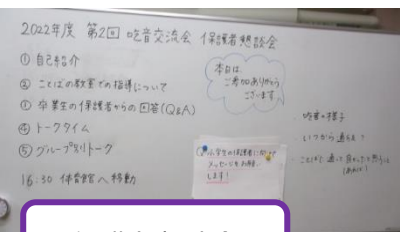 2022年度 第2回 吃音交流会 保護者懇談会
① 自己紹介
② ことばの教室での指導について
③ 卒業生の保護者からの回答(Q&A)
④ トークタイム
⑤ グループ別トーク
16:30 体育館へ移動
本日は、
ご参加ありがとう
ございます
小学生の保護者に
メッセージをお願い
します!
・吃音の様子
・いつから通